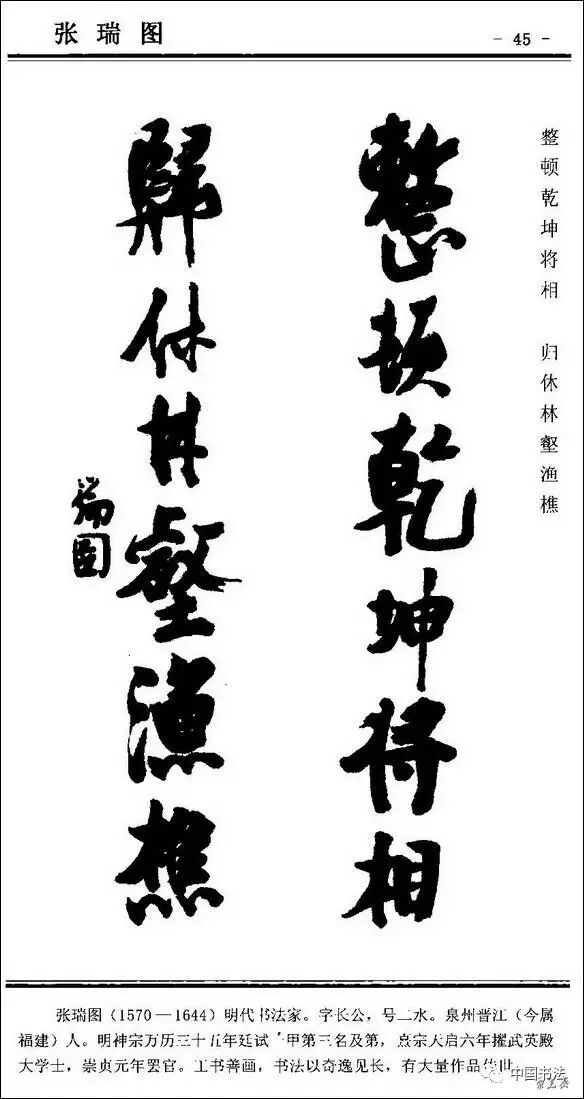 张瑞图
- 45 -
整顿乾坤将相　归休林壑渔樵
整頓乾坤將相
歸休林壑漁樵
瑞圖
张瑞图（1570—1644）明代书法家。字长公，号二水。泉州晋江（今属
福建）人。明神宗万历三十五年廷试甲第三名及第，熹宗天启六年擢武英殿
大学士，崇贞元年罢官。工书善画，书法以奇逸见长，有大量作品传世
中国书法